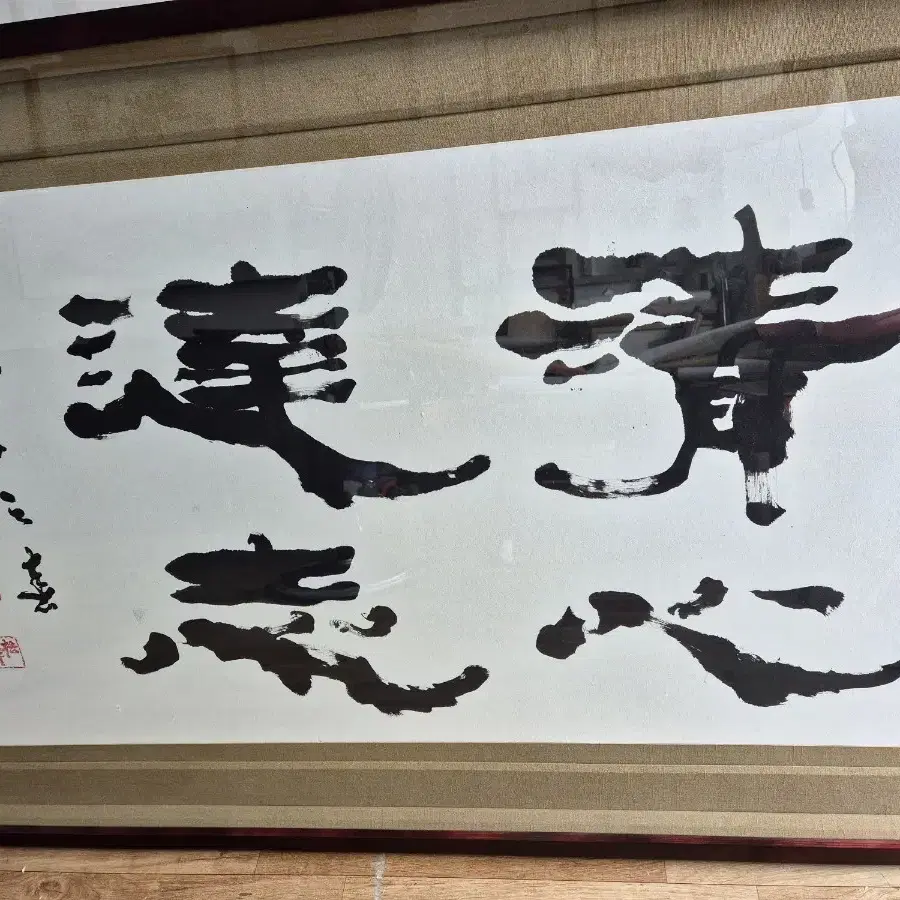 清心
達志